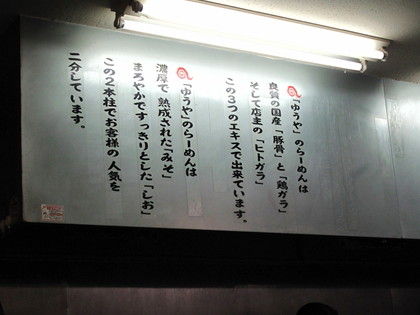 「ゆうや」のらーめんは
良質の国産「豚骨」と「鶏ガラ」
そして店主の「ヒトガラ」
この3つのエキスで出来ています。
「ゆうや」のらーめんは
濃厚で熟成された「みそ」
まろやかですっきりとした「しお」
この2本柱でお客様の人気を
二分しています。